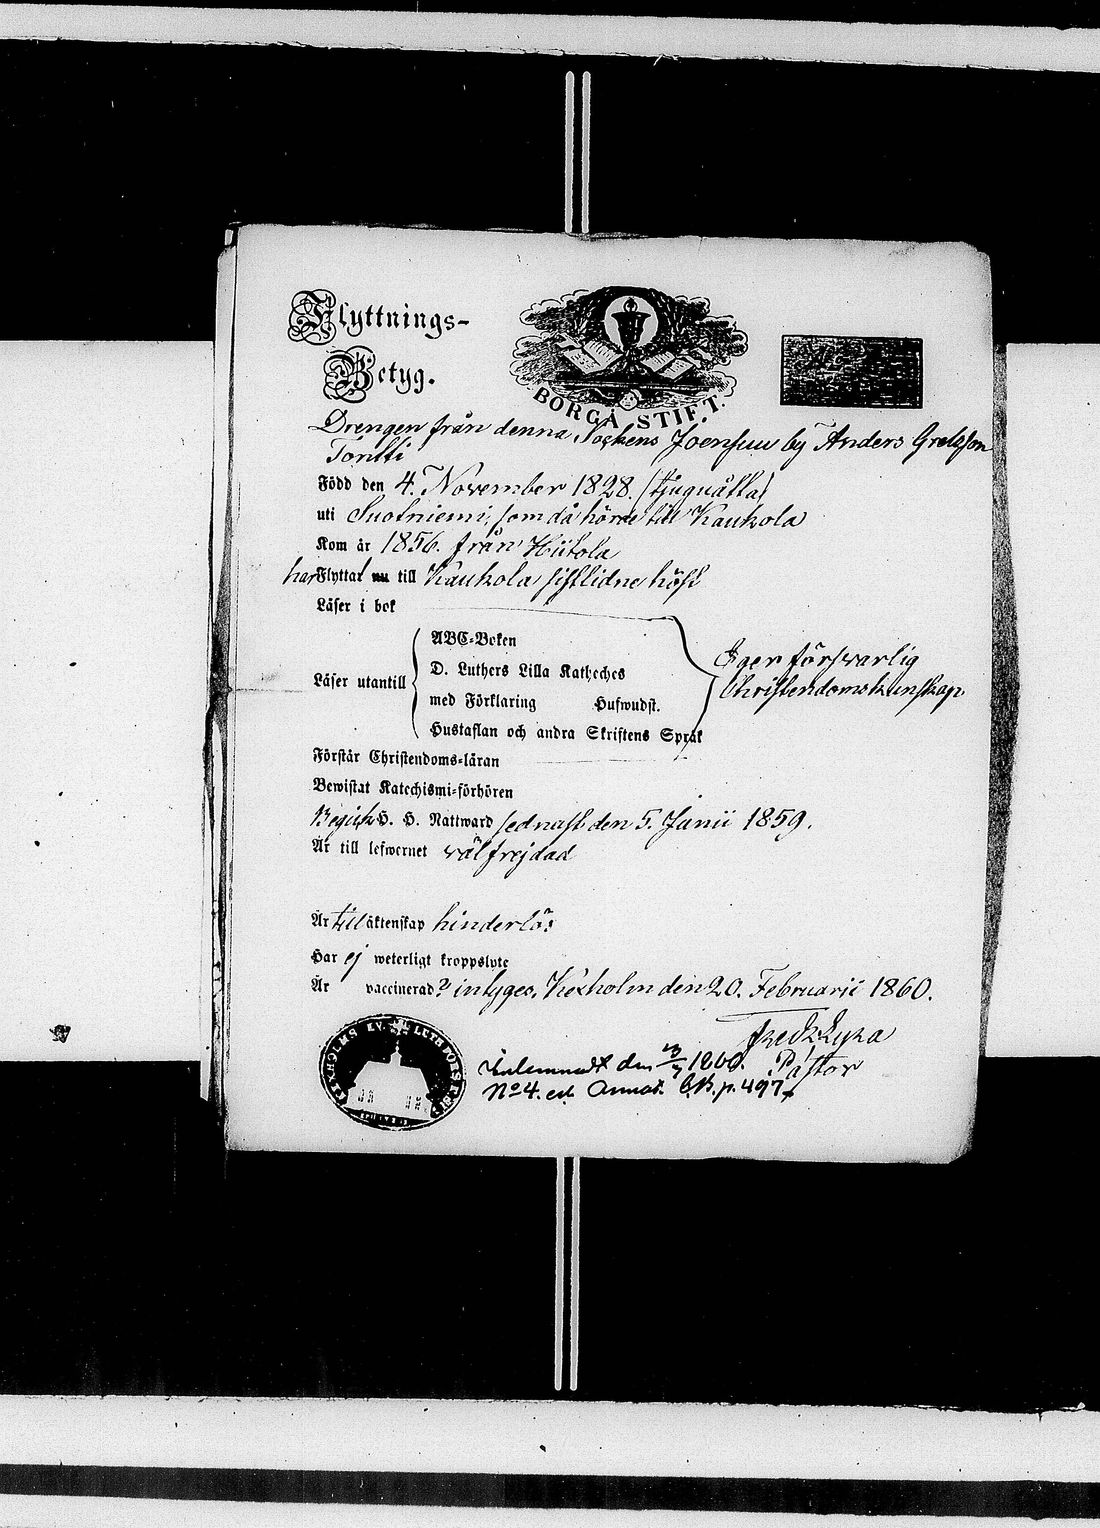 Flyttnings-
Betyg.
BORGÅ STIFT.
Drengen från denna Sockens Joensuu by Anders Gretasson
Tontti
Född den 4. November 1828. (tjuguåtta)
uti Suotniemi, som då hörde till Kaukola
Kom år 1856. från Hiitola
har Flyttat nu till Kaukola sistlidne höst
Läser i bok
ABC-Boken
D. Luthers Lilla Katheches
Läser utantill
med Förklaring Hufwudst.
Hustaflan och andra Skriftens Språk
Eger försvarlig
Christendomskunskap.
Förstår Christendoms-läran
Bewistat Katechismi-förhören
Begick H. H. Nattward sednast den 5. Junii 1859.
Är till lefwernet välfrejdad
Är till äktenskap hinderlös
Har ej weterligt kroppslyte
Är vaccinerad? intyges. Kexholm den 20. Februarii 1860.
Pastor
KEXHOLMS EV. LUTH.
Inlemnadt den 1860.
No 4. p. 497.